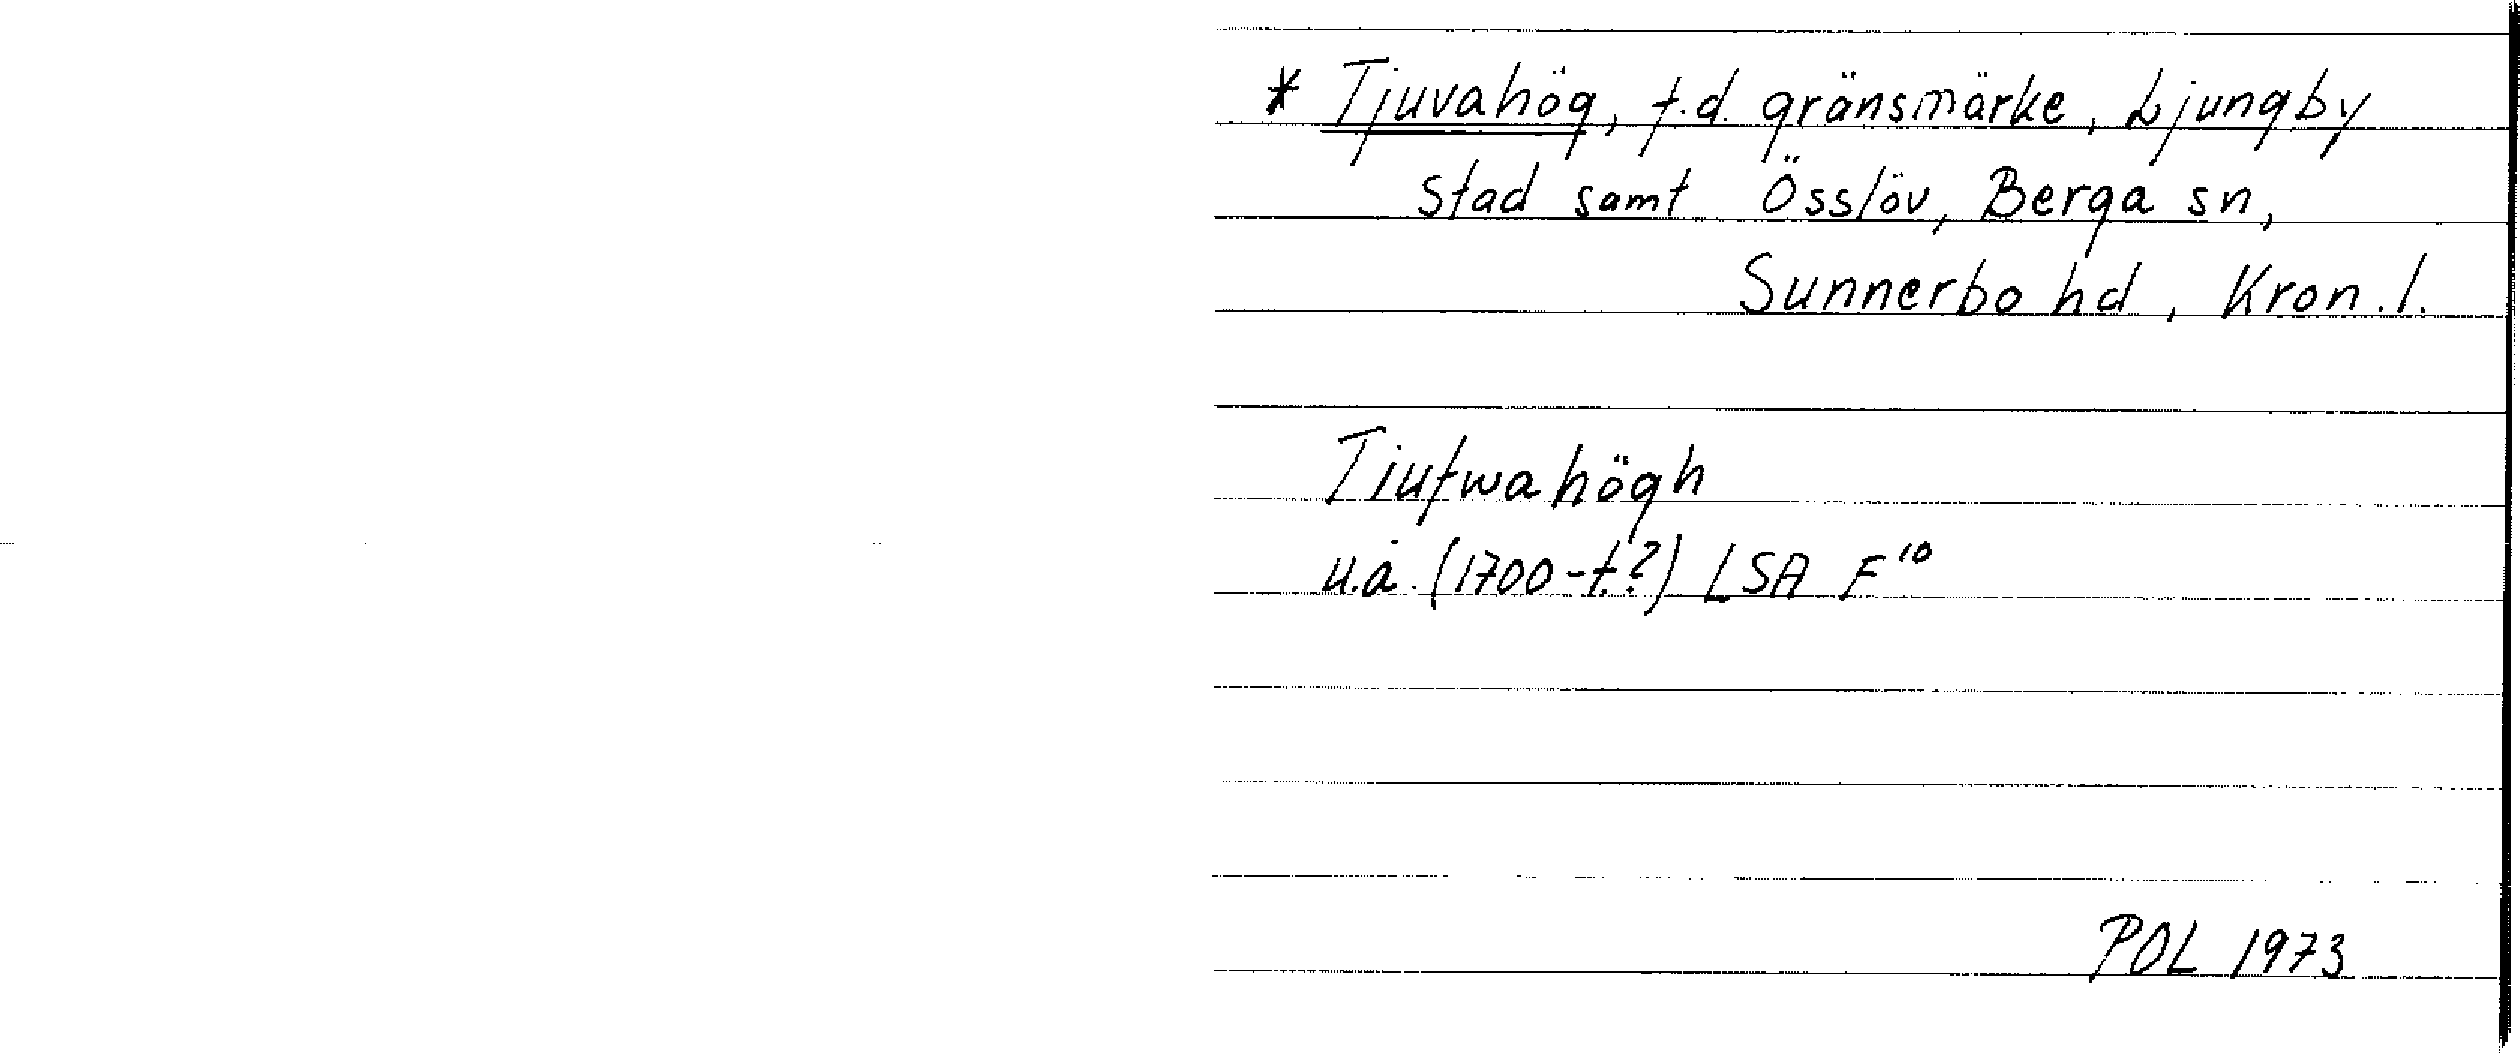 * Tjuvahög, f.d. gränsmärke, Ljungby
stad samt Össlöv, Berga sn,
Sunnerbo hd, Kron. l.
Tiufwahögh
u.å. (1700-t.?) LSA F¹⁰
POL 1973